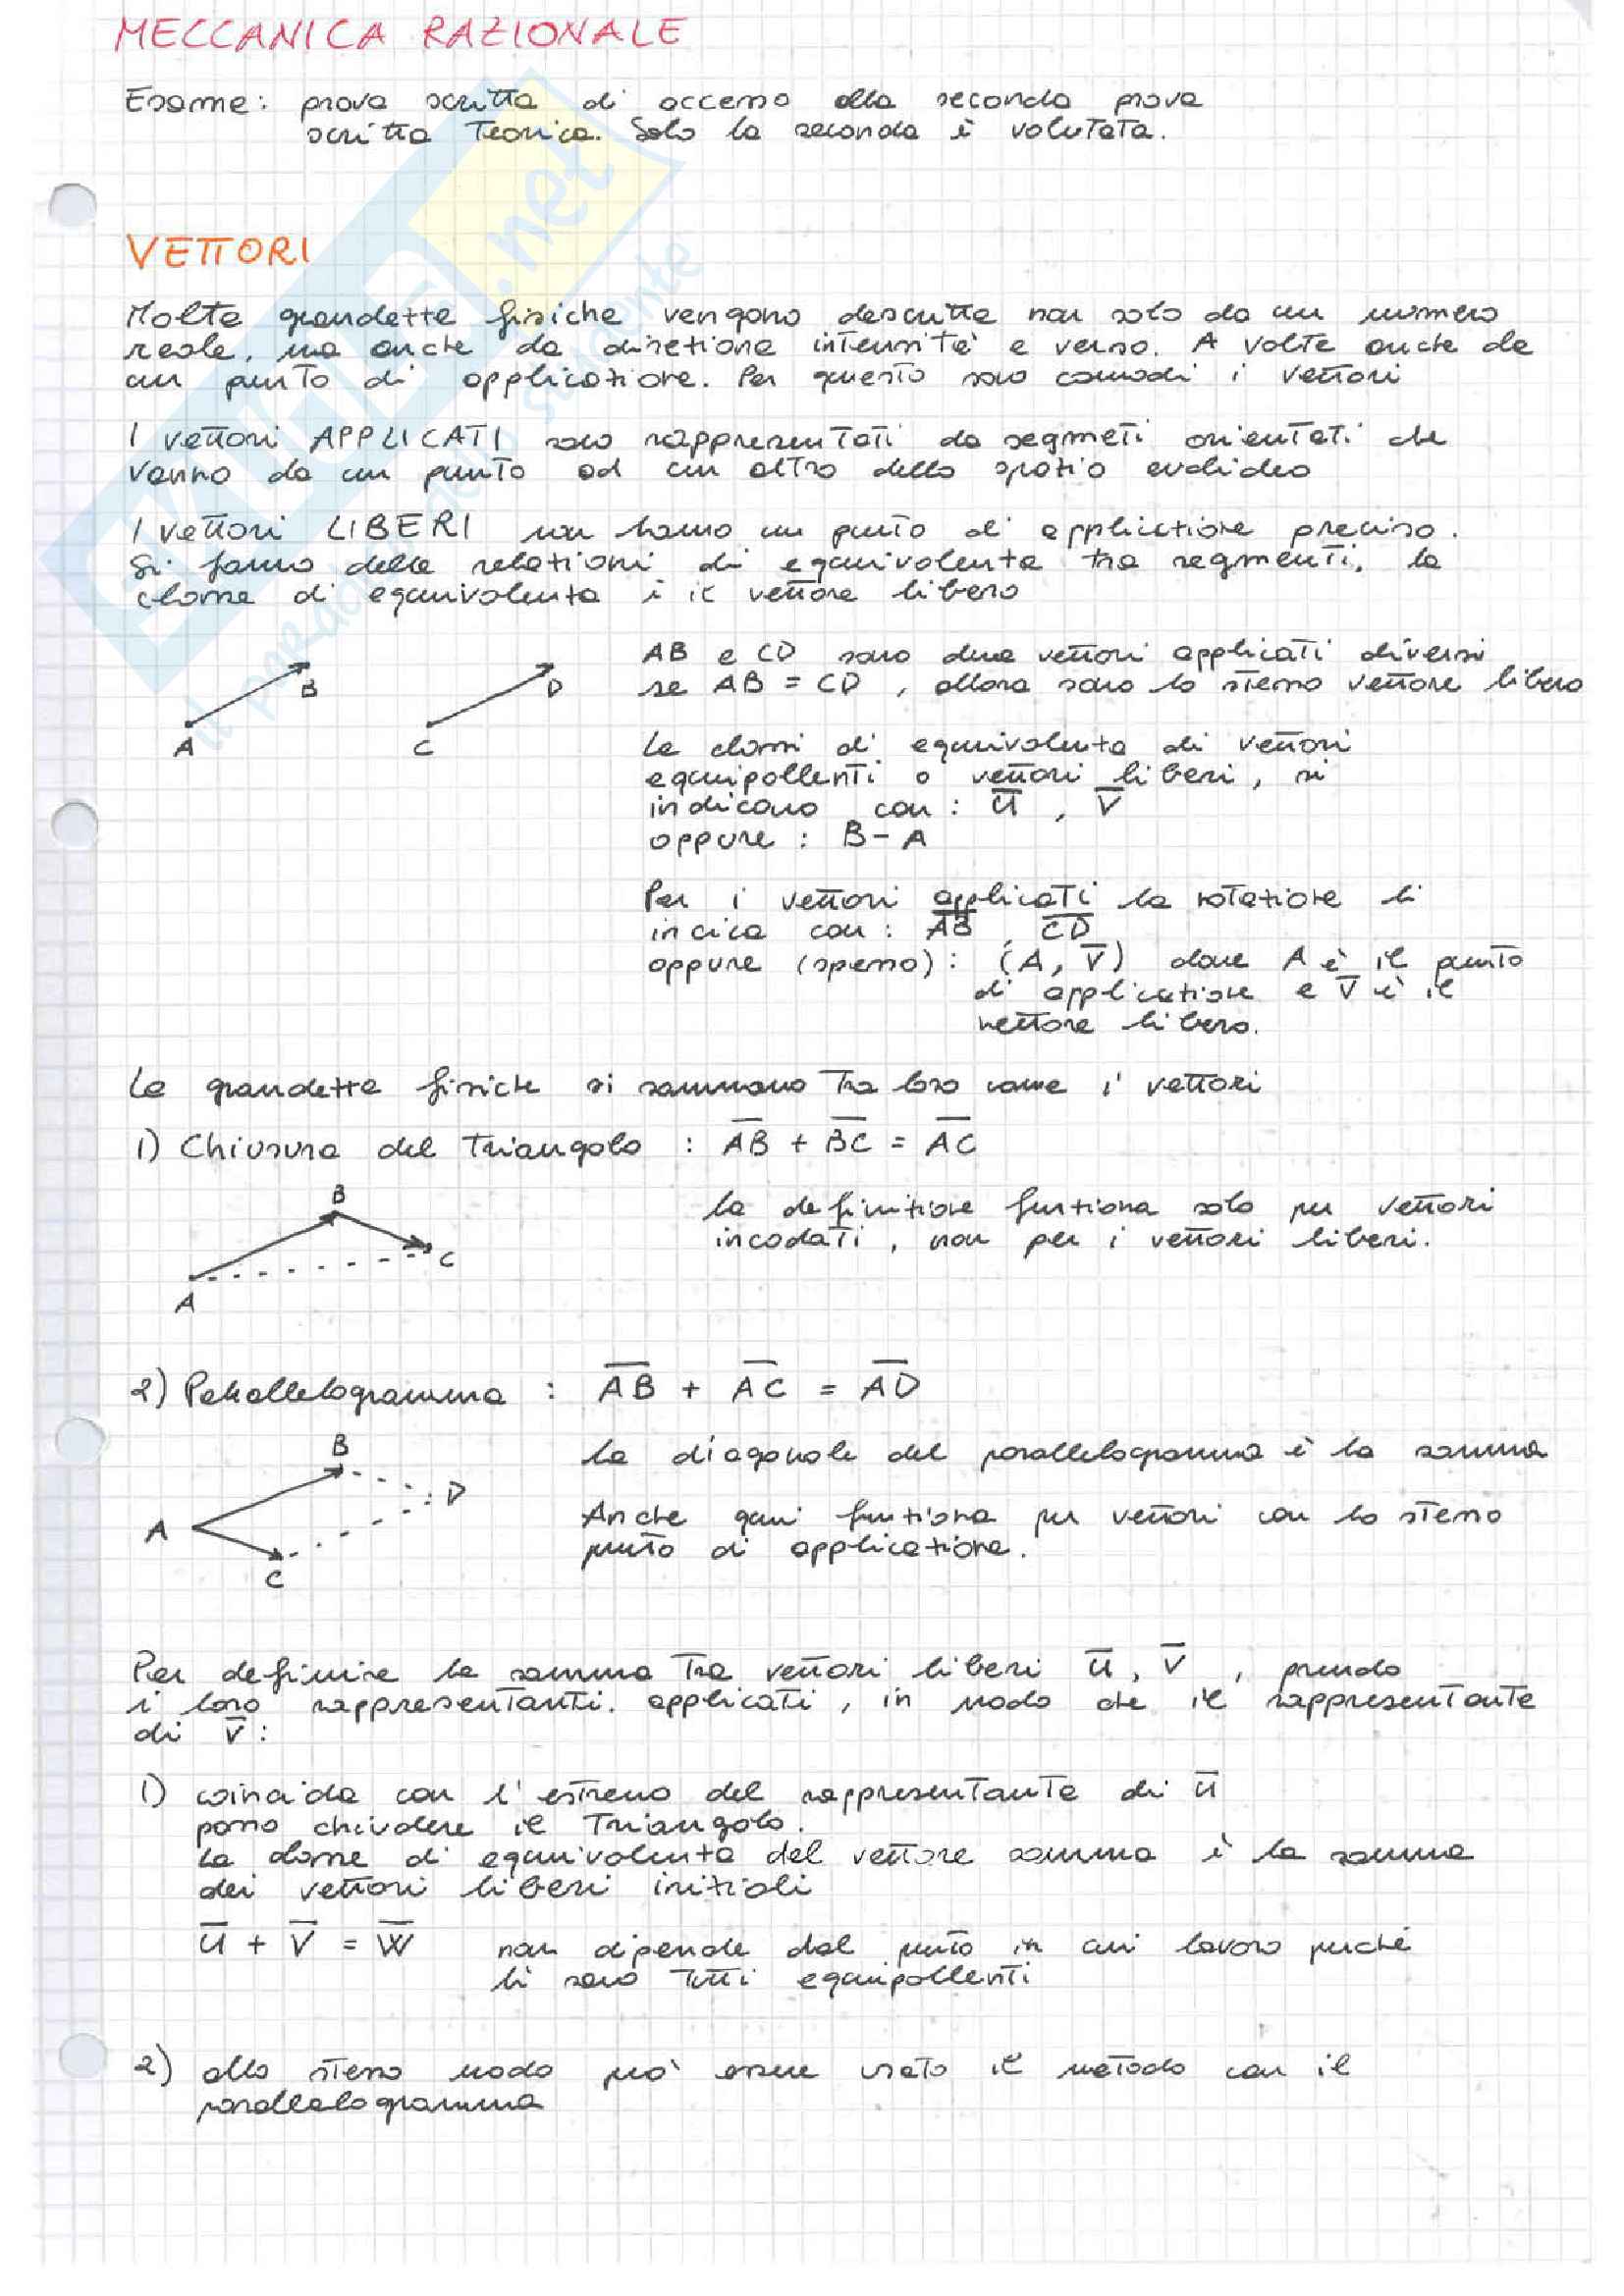 MECCANICA RAZIONALE
Esame: prova scritta di accesso alla seconda prova
scritta teorica. Solo la seconda è valutata.
VETTORI
Molte grandezze fisiche vengono descritte non solo da un numero
reale, ma anche da direzione intensità e verso. A volte anche da
un punto di applicazione. Per questo sono comodi i vettori
I vettori APPLICATI sono rappresentati da segmeti orientati che
vanno da un punto ad un altro dello spazio euclideo
I vettori LIBERI non hanno un punto di applicazione preciso.
Si fanno delle relazioni di equivalenza tra segmenti, la
classe di equivalenza è il vettore libero
AB e CD sono due vettori applicati diversi
se AB = CD, allora sono lo stesso vettore libero
A B C D
Le classi di equivalenza di vettori
equipollenti o vettori liberi, si
indicano con: u̅, v̅
oppure: B-A
Per i vettori applicati la notazione li
incica con: A̅B̅, C̅D̅
oppure (spesso): (A, v̅) dove A è il punto
di applicazione e v̅ è il
vettore libero.
Le grandezze fisiche si sommano tra loro come i vettori
1) Chiusura del triangolo: A̅B̅ + B̅C̅ = A̅C̅
B
la definizione funziona solo per vettori
incodati, non per i vettori liberi.
C
A
2) Parallelogramma: A̅B̅ + A̅C̅ = A̅D̅
B
La diagonale del parallelogramma è la somma
D
Anche qui funziona per vettori con lo stesso
A
punto di applicazione.
C
Per definire la somma tra vettori liberi u̅, v̅, prendo
i loro rappresentanti applicati, in modo che il rappresentante
di v̅:
1) coincida con l'estremo del rappresentante di u̅
posso chiudere il triangolo.
La classe di equivalenza del vettore somma è la somma
dei vettori liberi iniziali
u̅ + v̅ = w̅ non dipende dal punto in cui lavoro perché
lì sono tutti equipollenti
2) allo stesso modo può essere usato il metodo con il
parallelogramma
.net
il paradiso dello studente